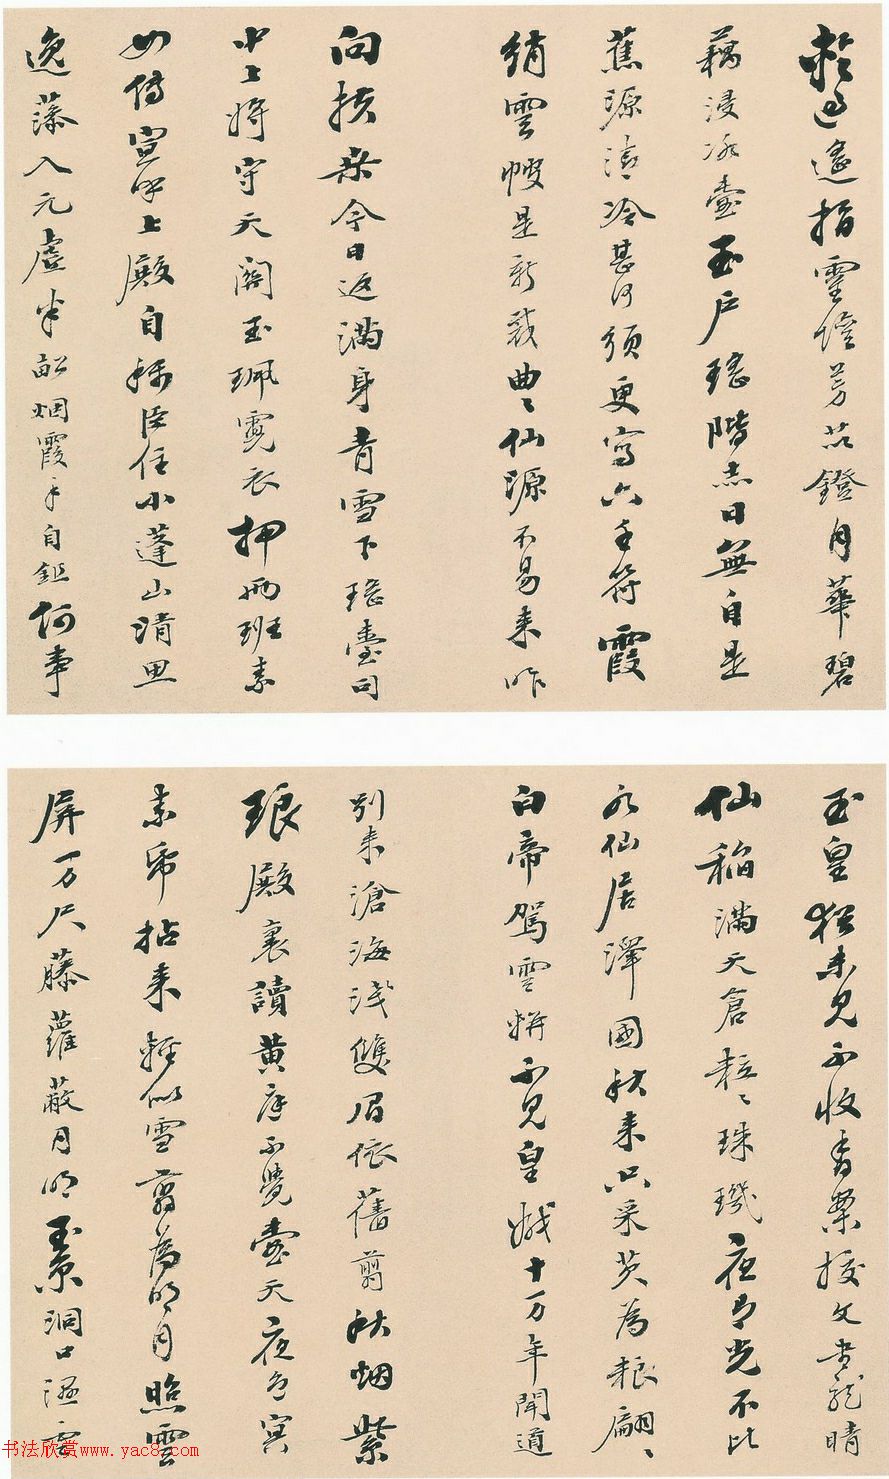 過遙指芳鐙月華碧
藕浸冰壺玉户瑤階赤日無自是
蕉源清〻冷甚何須更寫六壬符霞
綃雲幔是新裁曲〻仙源不易来昨
向扶桑今日返满身香雪下瑤臺
中上將守天閽玉珮霓衣押两班素
女傳宣呼上殿自稱臣住小蓬山清思
逸藻入元虚半畝烟霞手自鉏何事
玉皇猶未見不收香案授文書龍晴
仙稻满天倉粒〻珠璣夜有光不比
水仙居澤國秋来只采芡為粮翩〻
白帝駕雲軿不見皇娥十万年聞道
别来滄海淺雙眉依舊剪秋烟紫
琅殿裏讀黄庭不覺壺天夜已冥
素帋拈来輕似雪剪為明月照雲
屏万尺藤蘿蔽月明玉京洞口濕雲
书法欣赏www.yac8.com